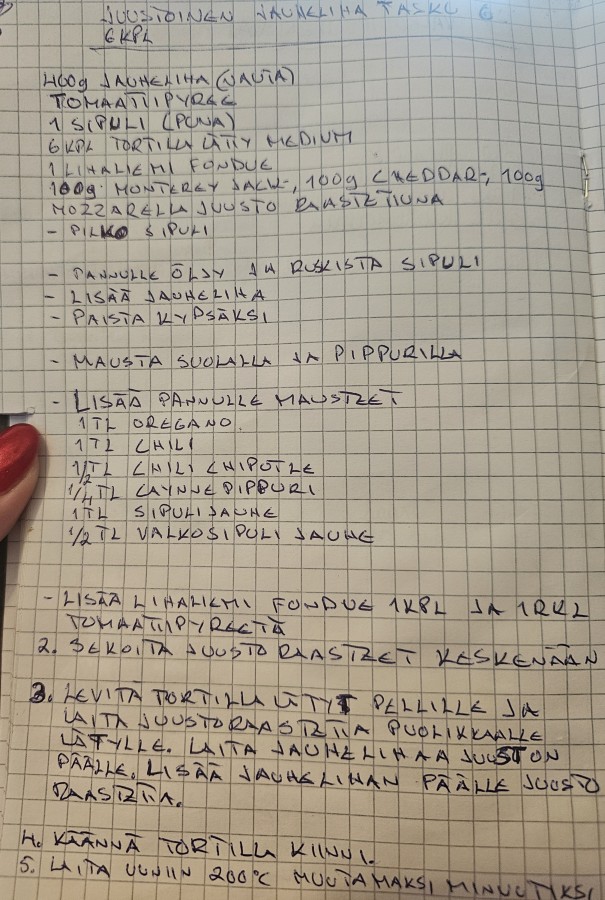 JUUSTOINEN JAUHELIHA TASKU 6
6 KPL
400g JAUHELIHA (NAUTA)
TOMAATTIPYREE
1 SIPULI (PUNA)
6 KPL TORTILLA LÄTTY MEDIUM
1 LIHALIEMI FONDUE
100g MONTEREY JACK-, 100g CHEDDAR-, 100g
MOZZARELLA JUUSTO RAASTETTUNA
- PILKO SIPULI
- PANNULLE ÖLJY JA RUSKISTA SIPULI
- LISÄÄ JAUHELIHA
- PAISTA KYPSÄKSI
- MAUSTA SUOLALLA JA PIPPURILLA
- LISÄÄ PANNULLE MAUSTEET
1 TL OREGANO
1 TL CHILI
1/2 TL CHILI CHIPOTLE
1/4 TL CAYNNE PIPPURI
1 TL SIPULIJAUHE
1/2 TL VALKOSIPULI JAUHE
- LISÄÄ LIHALIEMI FONDUE 1 KPL JA 1 RKL
TOMAATTIPYREETÄ
2. SEKOITA JUUSTO RAASTEET KESKENÄÄN
3. LEVITÄ TORTILLA LÄTYT PELLILLE JA
LAITA JUUSTORAASTETTA PUOLIKKAALLE
LÄTYLLE. LAITA JAUHELIHAA JUUSTON
PÄÄLLE. LISÄÄ JAUHELIHAN PÄÄLLE JUUSTO
RAASTETTA.
4. KÄÄNNÄ TORTILLA KIINNI.
5. LAITA UUNIIN 200°C MUUTAMAKSI MINUUTIKSI